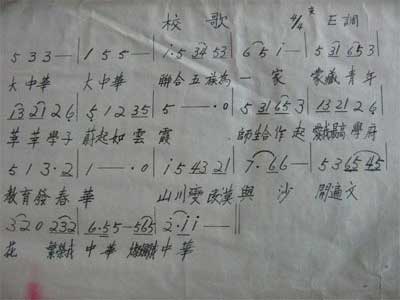 校歌 4/4 E調
5 3 3 — | 1 5 5 — | i·5 34 53 | 6 5 i — | 5 31 65 3 |
大中華 大中華 聯合五族為一家 蒙藏青年
13 21 2 6 | 5 1 2 35 | 5 — — ·0 | 5 31 65 3 | 13 21 2 6 |
莘莘學子 蔚起如雲霞 師生合作起 最高學府
5 1 3·2 | 1 — — ·0 | i 5 43 21 | 7·6 6 — | 5 3 65 45 |
教育發春華 山川變 漠與沙 開遍文
3 2 0 232 | 6·5 5 — 565 | 2·i i — ||
花 中華 中華